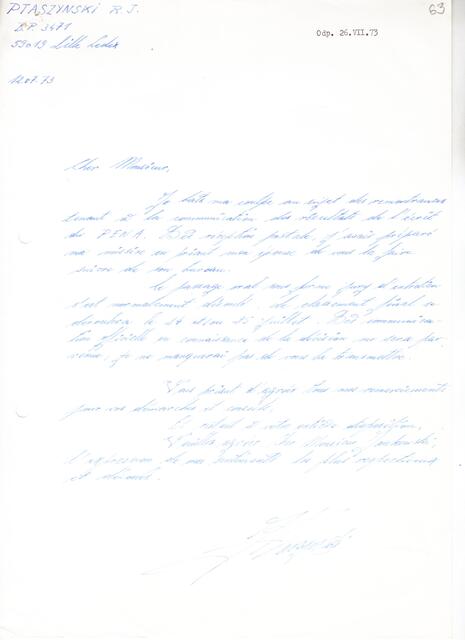 PTASZYNSKI R. J.
63
B.P. 3471
59019 Lille Cedex
Odp. 26.VII.73
12.07.73
Cher Monsieur,
Je bats ma coulpe au sujet des remontrances
tenant à la communication des résultats de l'écrit
du PENA. Dès réception postale, j'avais préparé
ma missive en priant mon épouse de vous le faire
suivre de son bureau.
Le passage oral sous forme jury d'
s'est normalement déroulé. Le classement final se
déroulera le 24 et ou 25 juillet. Dès communica-
tion officielle en connaissance de la décision me sera par-
venue, je ne manquerai pas de vous la transmettre.
Vous priant d'agréer tous mes remerciements
pour vos démarches et conseils,
Et restant à votre entière disposition,
Veuillez agréer Cher Monsieur Jankowski,
l'expression de mes sentiments les plus respectueux
et dévoués.